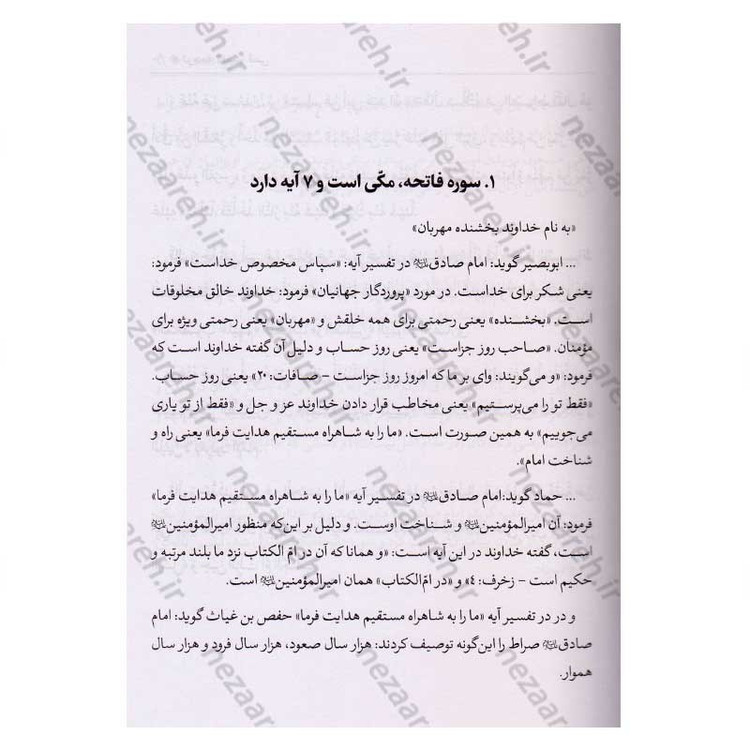 ۱. سوره فاتحه، مکّی است و ۷ آیه دارد
«به نام خداوند بخشنده مهربان»
... ابوبصیر گوید: امام صادق در تفسیر آیه: «سپاس مخصوص خداست» فرمود:
یعنی شکر برای خداست. در مورد «پروردگار جهانیان» فرمود: خداوند خالق مخلوقات
است. «بخشنده» یعنی رحمتی برای همه خلقش و «مهربان» یعنی رحمتی ویژه برای
مؤمنان. «صاحب روز جزاست» یعنی روز حساب و دلیل آن گفته خداوند است که
فرمود: «و می‌گویند: وای بر ما که امروز روز جزاست – صافات: ۲۰» یعنی روز حساب.
«فقط تو را می‌پرستیم» یعنی مخاطب قرار دادن خداوند عز و جل و «فقط از تو یاری
می‌جوییم» به همین صورت است. «ما را به شاهراه مستقیم هدایت فرما» یعنی راه و
شناخت امام».
... حماد گوید: امام صادق در تفسیر آیه «ما را به شاهراه مستقیم هدایت فرما»
فرمود: آن امیرالمؤمنین و شناخت اوست. و دلیل بر این‌که منظور امیرالمؤمنین
است، گفته خداوند در این آیه است: «و همانا که آن در امّ الکتاب نزد ما بلند مرتبه و
حکیم است – زخرف: ۴» و «در امّ‌الکتاب» همان امیرالمؤمنین است.
و در در تفسیر آیه «ما را به شاهراه مستقیم هدایت فرما» حفص بن غیاث گوید: امام
صادق صراط را این‌گونه توصیف کردند: هزار سال صعود، هزار سال فرود و هزار سال
هموار.
nezaareh.ir